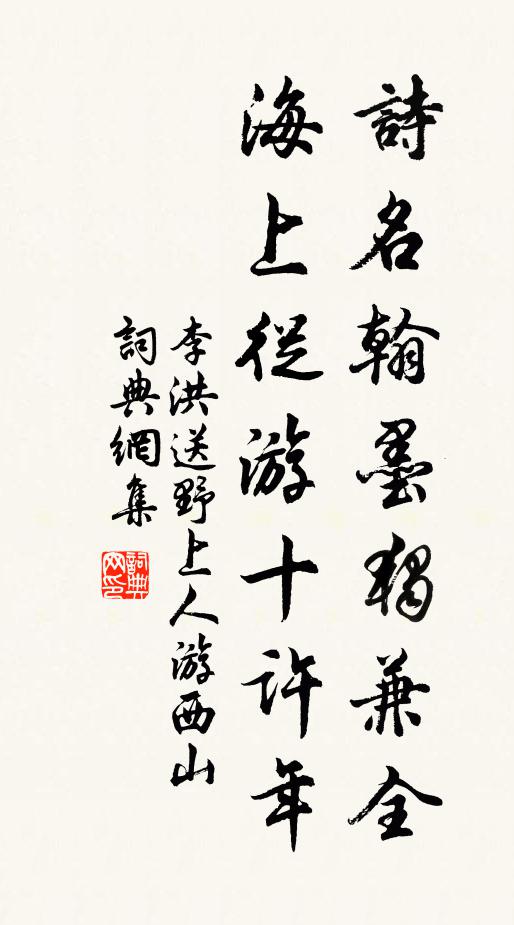 詩名翰墨獨兼全
海上從游十許年
李洪送野上人游西山
詞典網集
詞典網印